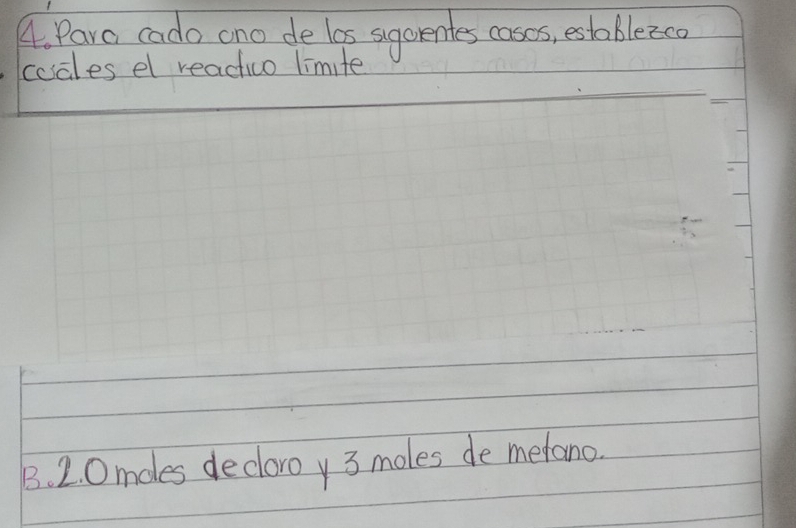 4. Para cada uno de los siguientes casos, establezca
cuál es el reactivo límite
B. 2.0 moles de cloro y 3 moles de metano.